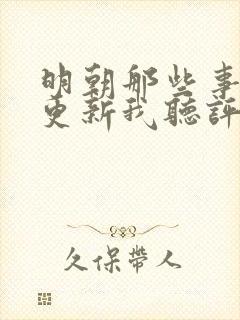 明朝那些事
更新我聽評
久保帶人